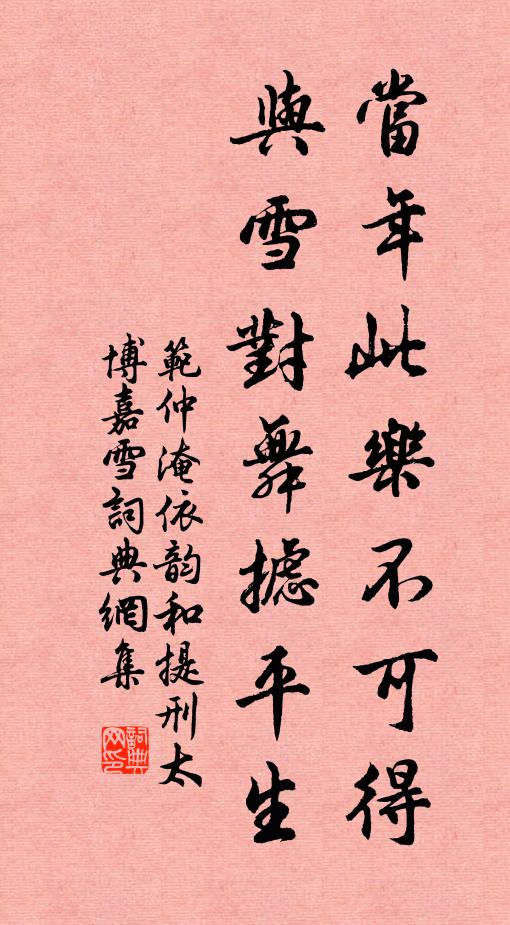 當年此樂不可得
與雪對舞攄平生
範仲淹依韵和提刑太
博嘉雪詞典網集
詞典
网印